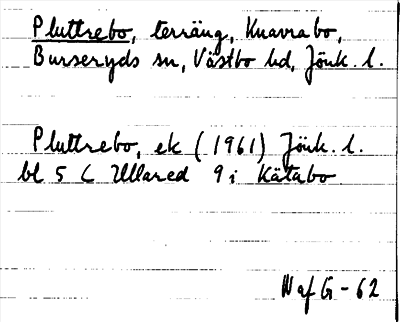 Pluttrebo, terräng, Knavrabo,
Burseryds sn, Västbo hd, Jönk. l.
Pluttrebo, ek (1961) Jönk. l.
bl 5 C Ullared 9 i Kätabo
N af G - 62